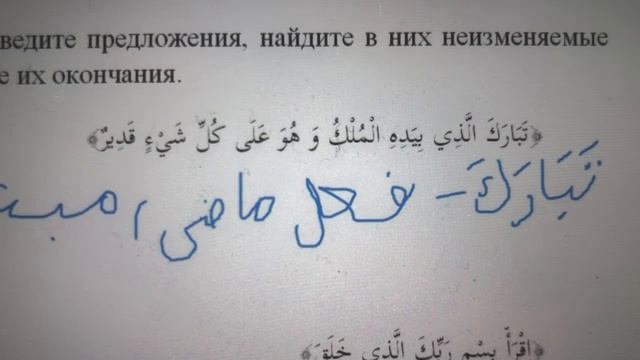 ведите предложения, найдите в них неизменяемые
е их окончания.
﴿تَبَارَكَ الَّذِي بِيَدِهِ الْمُلْكُ وَ هُوَ عَلَى كُلِّ شَيْءٍ قَدِيرٌ﴾
تَبَارَكَ – فعل ماضي ,
﴿اِقْرَأْ بِسْمِ رَبِّكَ الَّذِي خَلَقَ﴾